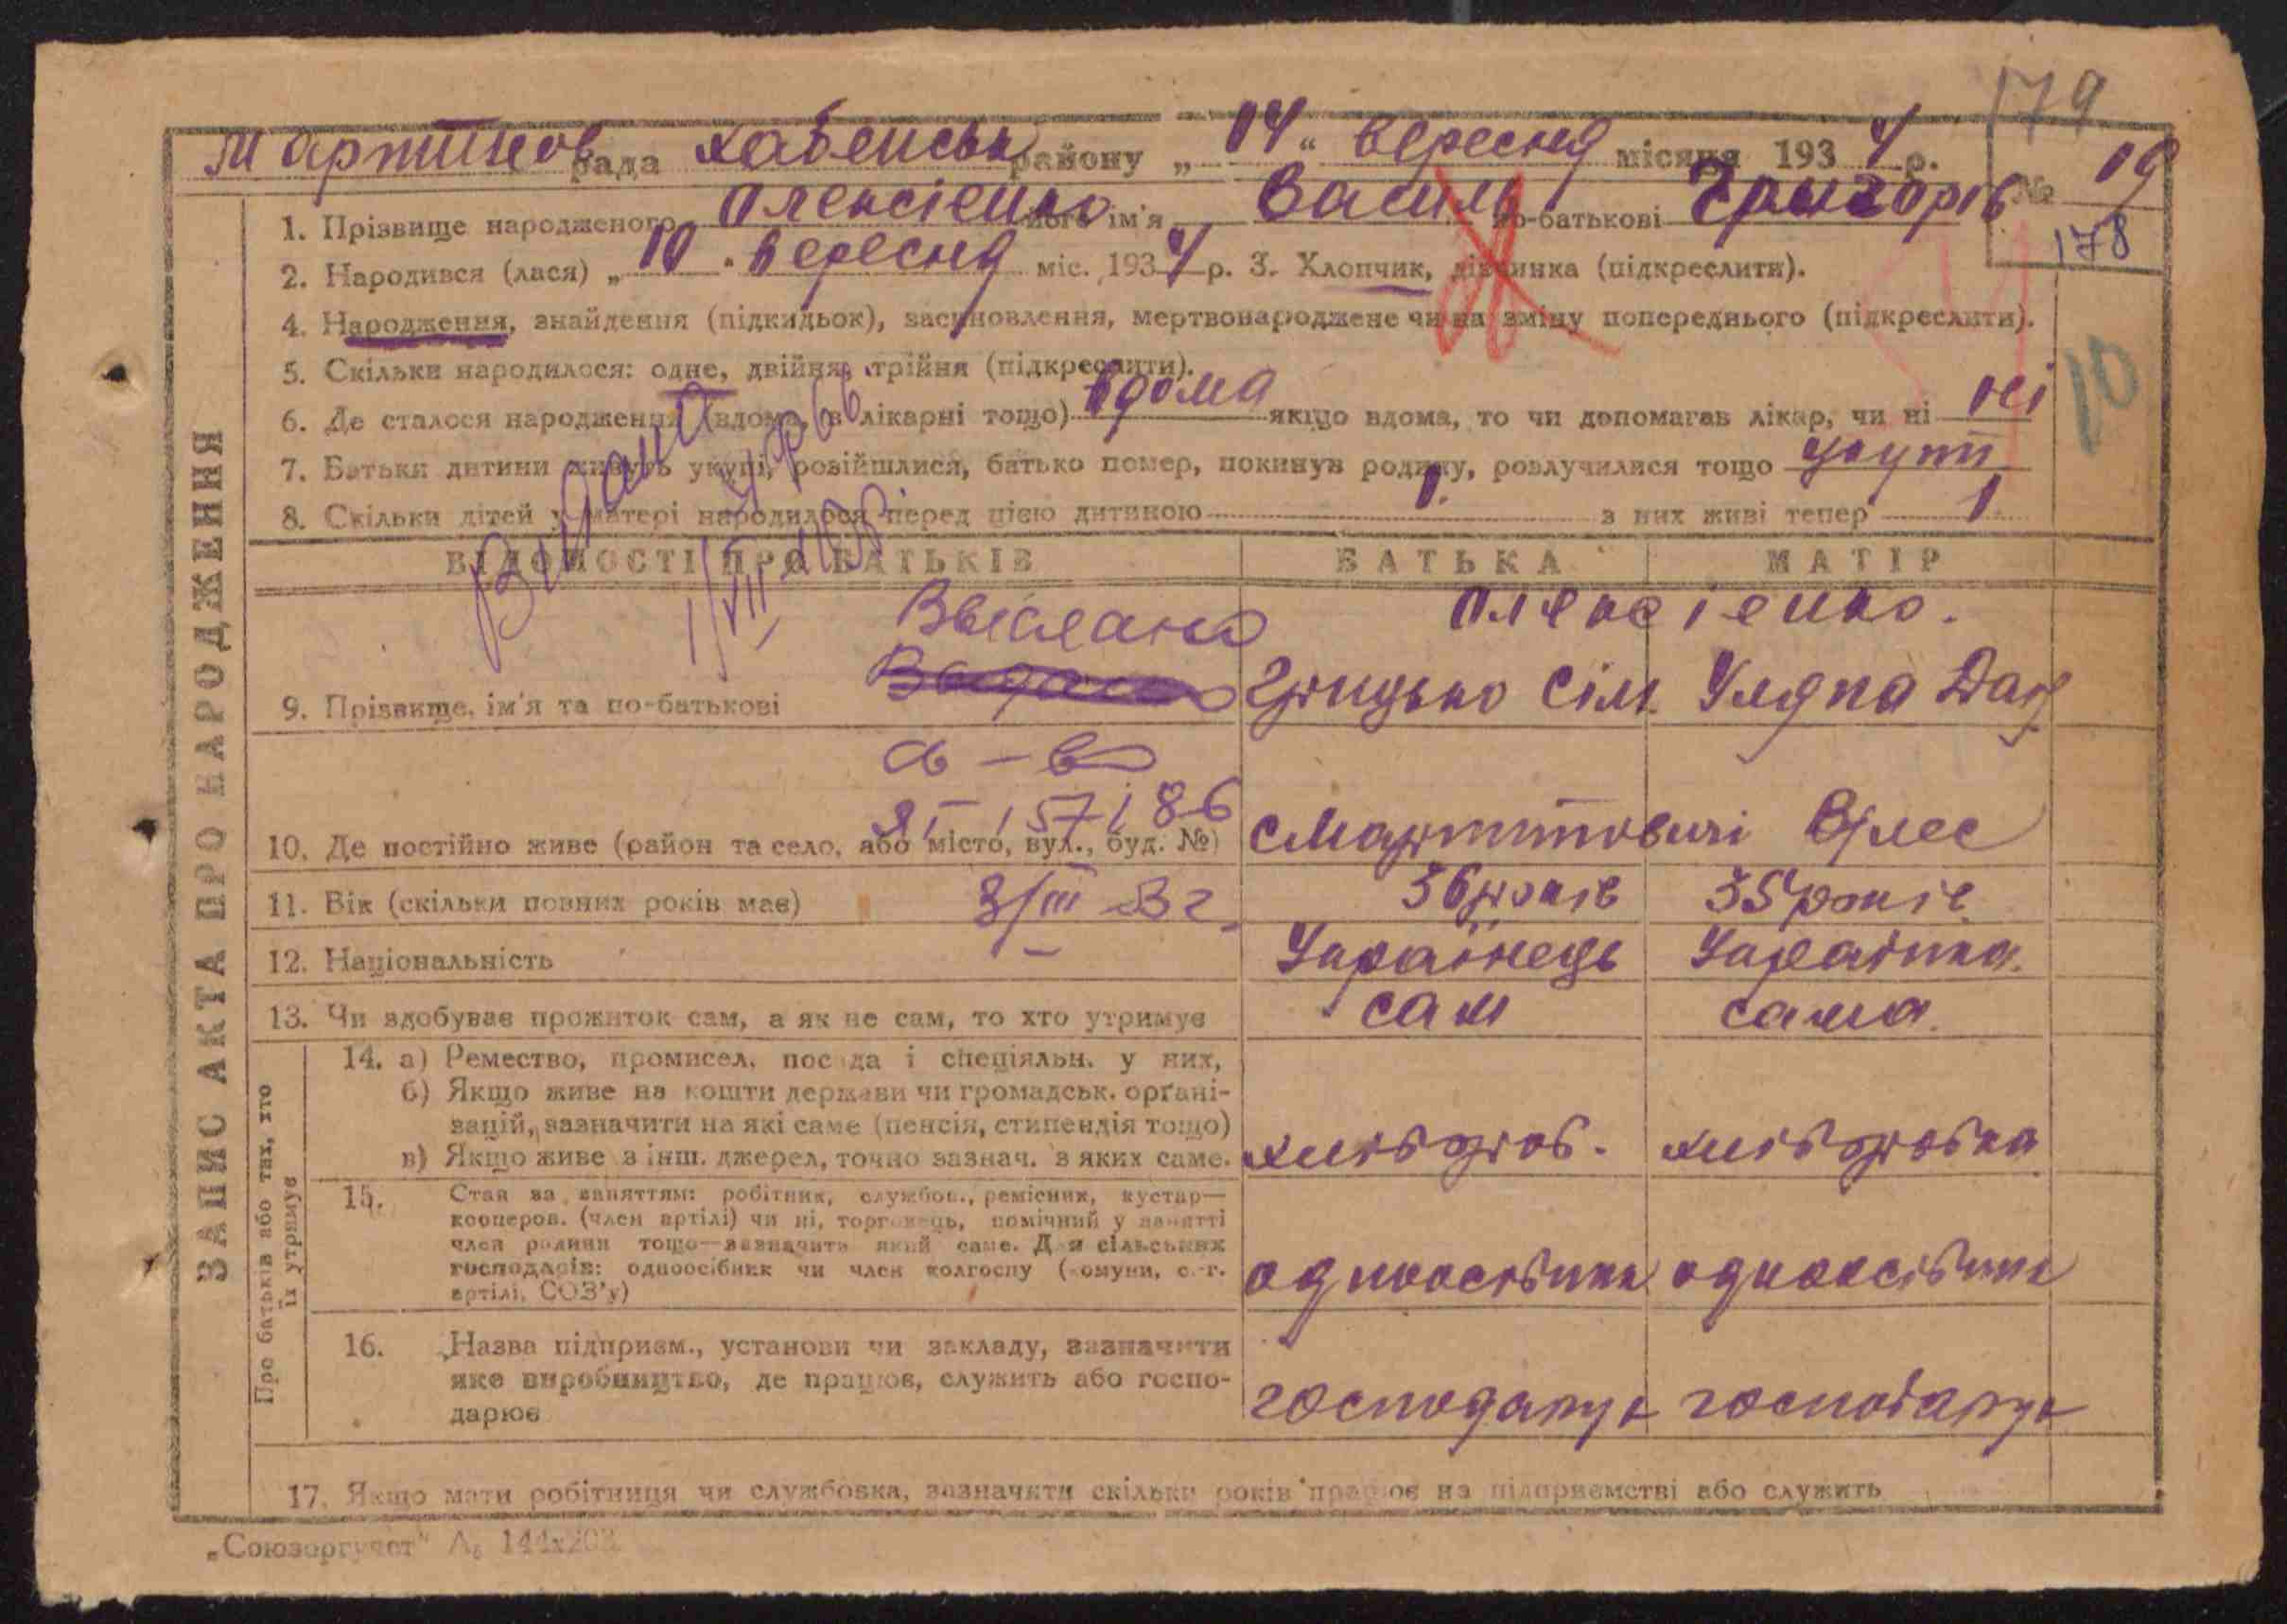 179
Мартинов рада Хабенськ району „ 14 “ вересня місяця 1934 р. № 19
178
1. Прізвище народженого Олексієнко його ім'я Василь по-батькові Григорів
2. Народився (лася) „ 10 “ вересня міс. 1934 р. 3. Хлопчик, дівчинка (підкреслити).
4. Народження, знайдення (підкидьок), засиновлення, мертвонароджене чи на зміну попереднього (підкреслити).
5. Скільки народилося: одне, двійня, трійня (підкреслити).
6. Де сталося народження (вдома, в лікарні тощо) вдома якщо вдома, то чи допомагав лікар, чи ні ні
10
7. Батьки дитини живуть укупі, розійшлися, батько помер, покинув родину, розлучилися тощо укупі
8. Скільки дітей у матері народилося перед цією дитиною 1. з них живі тепер 1
ЗАПИС АКТА ПРО НАРОДЖЕННЯ
ВІДОМОСТІ ПРО БАТЬКІВ БАТЬКА МАТІР
Выслано Олексієнко.
9. Прізвище, ім'я та по-батькові Грицько Сім. Уляна Дан
св-во
157186
10. Де постійно живе (район та село, або місто, вул., буд. №)
11. Вік (скільки повних років має) 36 років 35 років
12. Національність Українець Українка.
13. Чи здобуває прожиток сам, а як не сам, то хто утримує сам сама.
Про батьків або тих, хто їх утримує
14. а) Ремество, промисел, посада і спеціяльн. у них,
б) Якщо живе на кошти держави чи громадськ. орґані-
зацій, зазначити на які саме (пенсія, стипендія тощо)
в) Якщо живе з інш. джерел, точно зазнач. з яких саме. хлібороб. хліборобка
15. Стан за заняттям: робітник, службов., ремісник, кустар—
кооперов. (член артілі) чи ні, торговець, помічний у занятті
член родини тощо—зазначити який саме. Для сільських
господарів: одноосібник чи член колгоспу (комуни, с.-г.
артілі, СОЗ'у) одноосібник одноосібник
16. Назва підприєм., установи чи закладу, зазначити
яке виробництво, де працює, служить або госпо-
дарює господарує господарує
17. Якщо мати робітниця чи службовка, зазначити скільки років працює на підприємстві або служить
„Союзоргучет"